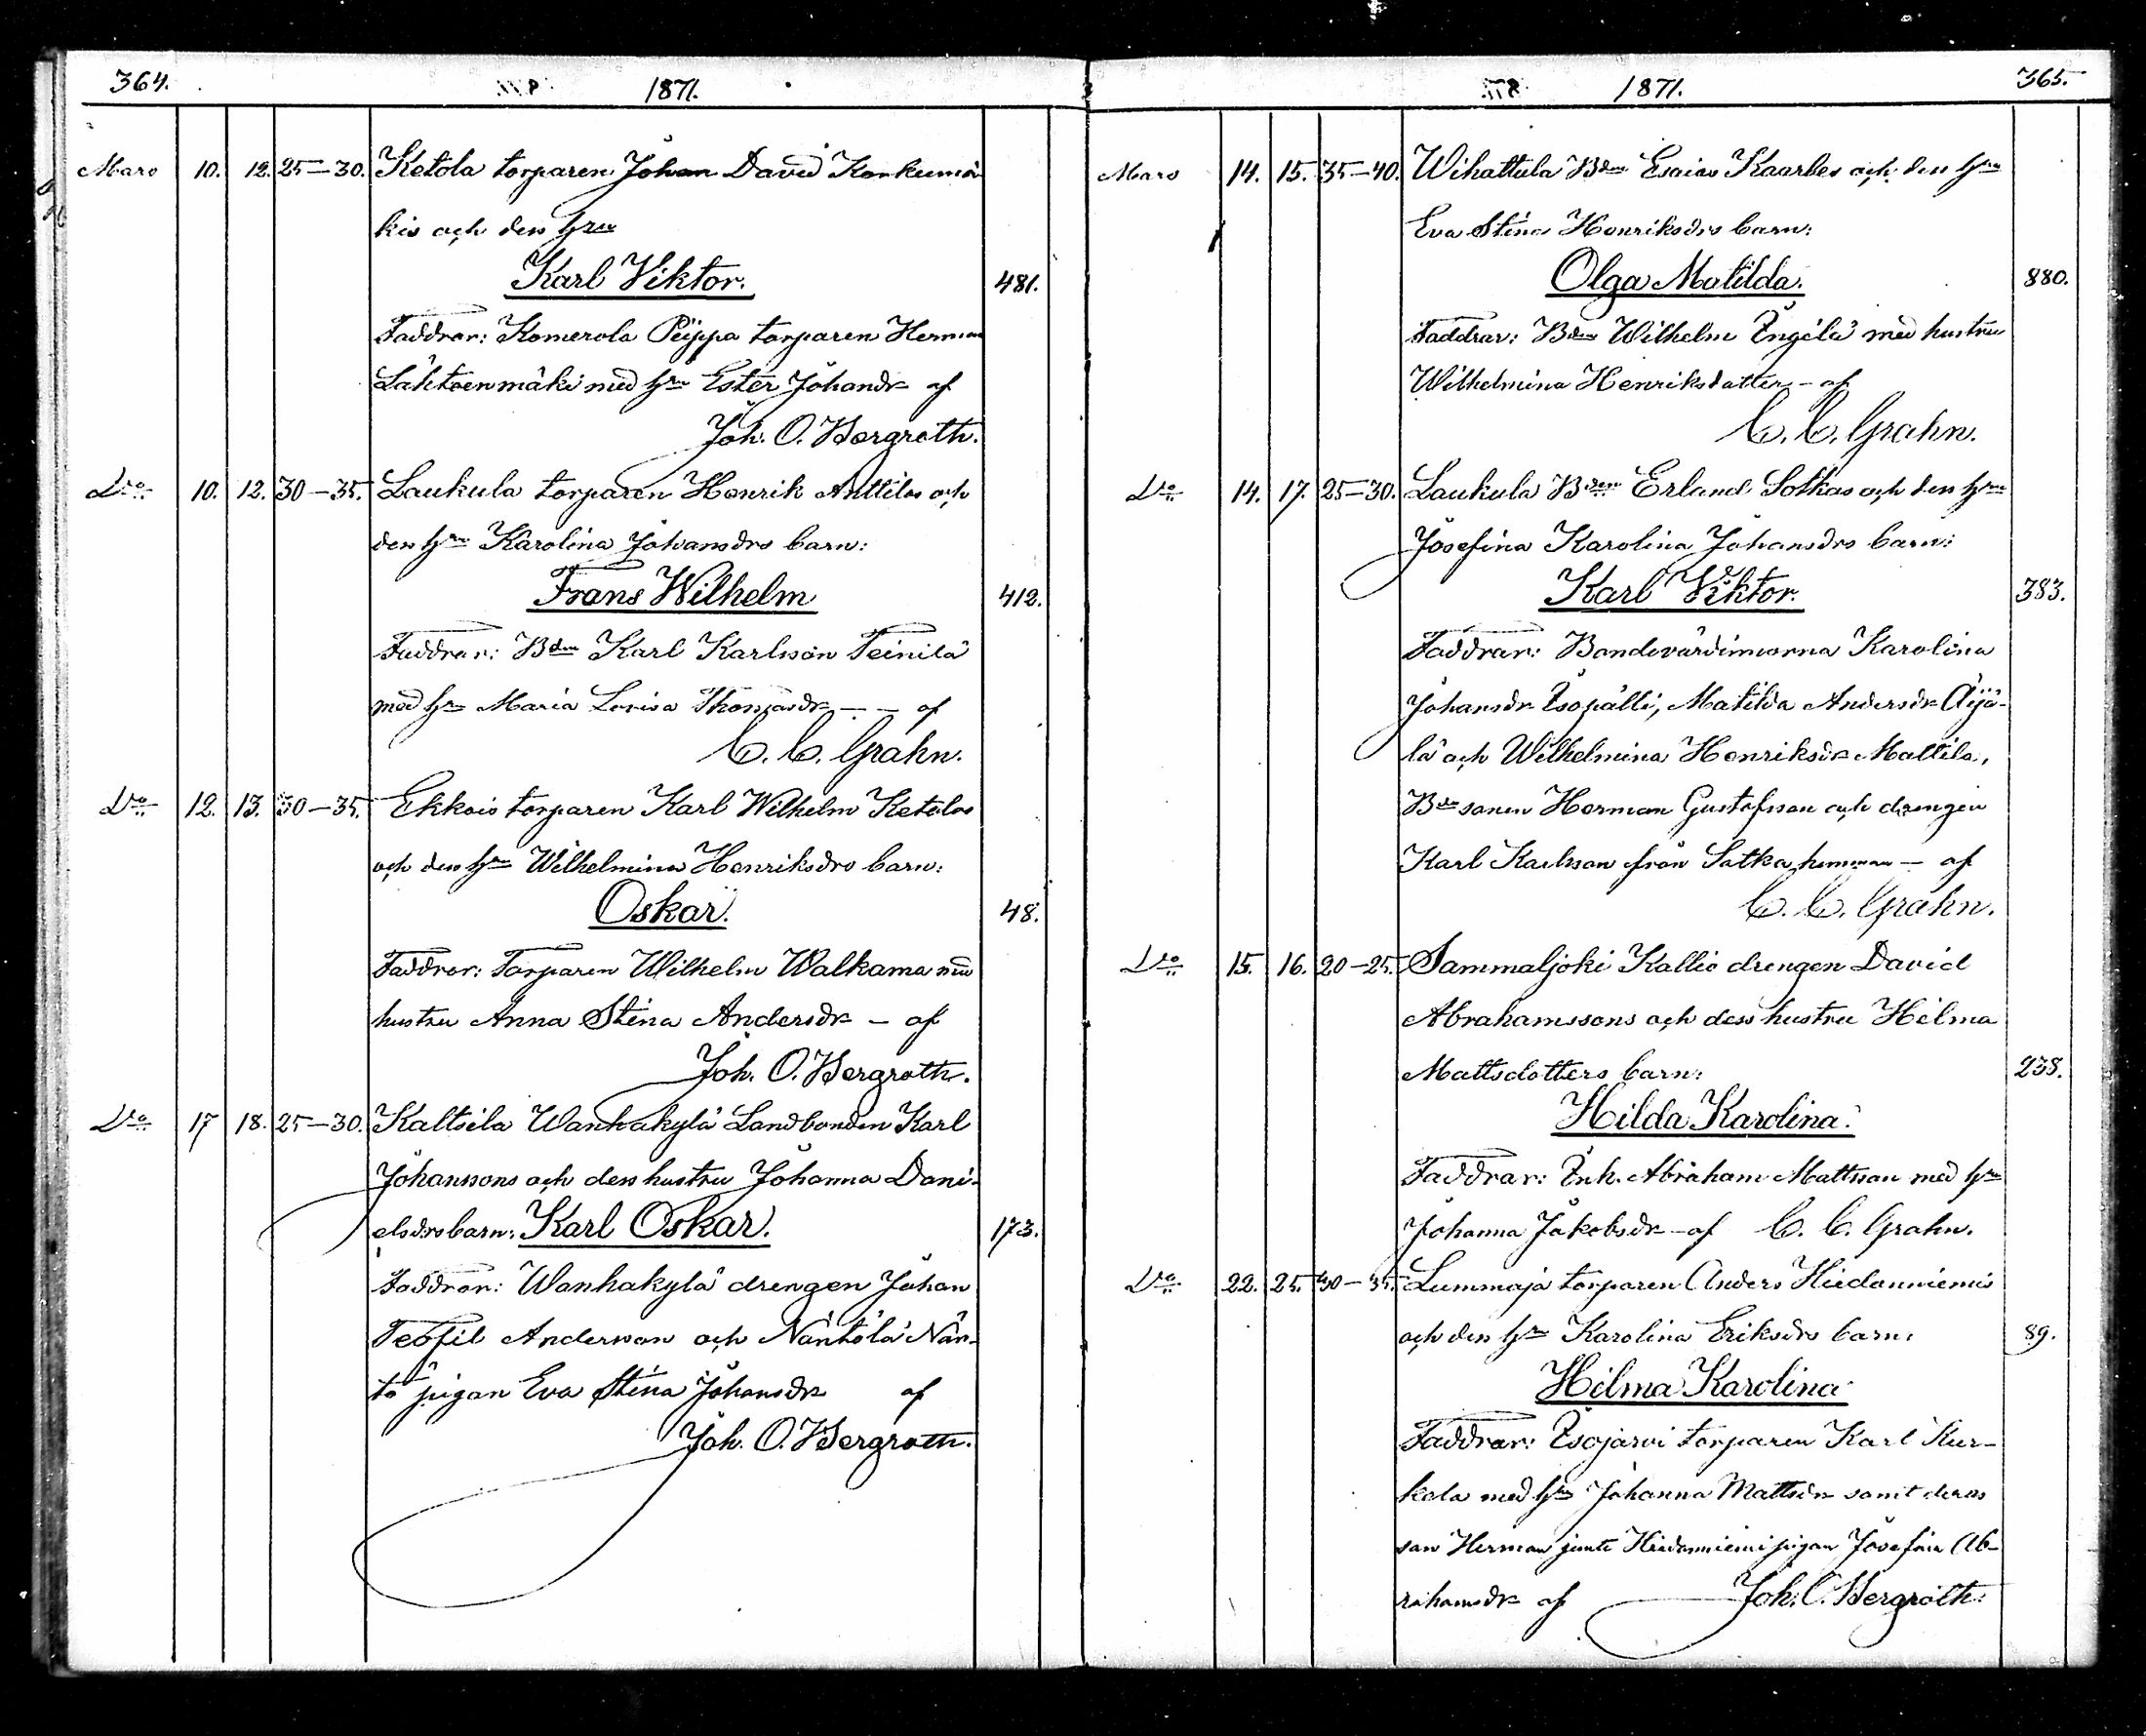 364. 1871.
Mars 10. 12. 25–30. Ketola torparen Johan David Konkumä-
kis och den hru
Karl Viktor. 481.
Faddrar: Komerola Piippa torparen Herman
Lähteenmäki med hru Ester Johansdr af
Joh. O. Bergroth.
D:o 10. 12. 30–35. Laukula torparen Henrik Anttilas och
des hru Karolina Johansdrs barn:
Frans Wilhelm 412.
Faddrar: Bden Karl Karlsson Teinilä
med hru Maria Lovisa Thomasdr – – af
C. C. Grahn.
D:o 12. 13. 30–35. Ekkois torparen Karl Wilhelm Ketolas
och des hru Wilhelmina Henriksdrs barn:
Oskar. 48.
Faddrar: Torparen Wilhelm Walkama med
hustru Anna Stina Andersdr – af
Joh. O. Bergroth.
D:o 17 18. 25–30. Kaltsila Wanhakylä Landbonden Karl
Johanssons och dess hustru Johanna Dani-
elsdrs barn: Karl Oskar. 173.
Faddrar: Wanhakylä drengen Johan
Teofil Andersson och Näntölä Nän-
tö pigan Eva Stina Johansdr af
Joh. O. Bergroth.
1871. 365.
Mars 14. 15. 35–40. Wihattula Bden Esaias Kaarles och des hru
Eva Stina Henriksdrs barn:
Olga Matilda. 880.
Faddrar: Bden Wilhelm Engilä med hustru
Wilhelmina Henriksdatter – af
C. C. Grahn.
D:o 14. 17. 25–30. Laukula Bden Erland Sotkas och des hru
Josefina Karolina Johansdrs barn:
Karl Viktor. 383.
Faddrar: Bondevärdinnorna Karolina
Johansdr Isopälli, Matilda Andersdr Äijä-
lä och Wilhelmina Henriksdr Mattila,
Bde sonen Herman Gustafsson och drengen
Karl Karlsson från Sotka hemman – af
C. C. Grahn.
D:o 15. 16. 20–25. Sammaljoki Kallio drengen David
Abrahamssons och dess hustru Hilma
Mattsdotters barn: 238.
Hilda Karolina.
Faddrar: Inh. Abraham Mattsson med hru
Johanna Jakobsdr – af C. C. Grahn.
D:o 22. 25. 30–35. Lummaja torparen Anders Hiidenniemis
och des hru Karolina Eriksdrs barn: 89.
Hilma Karolina
Faddrar: Isojärvi torparen Karl Kur-
kela med hru Johanna Mattsdr samt deras
son Herman jemte Hiidenniemi pigan Josefina Ab-
rahamsdr af Joh. O. Bergroth.